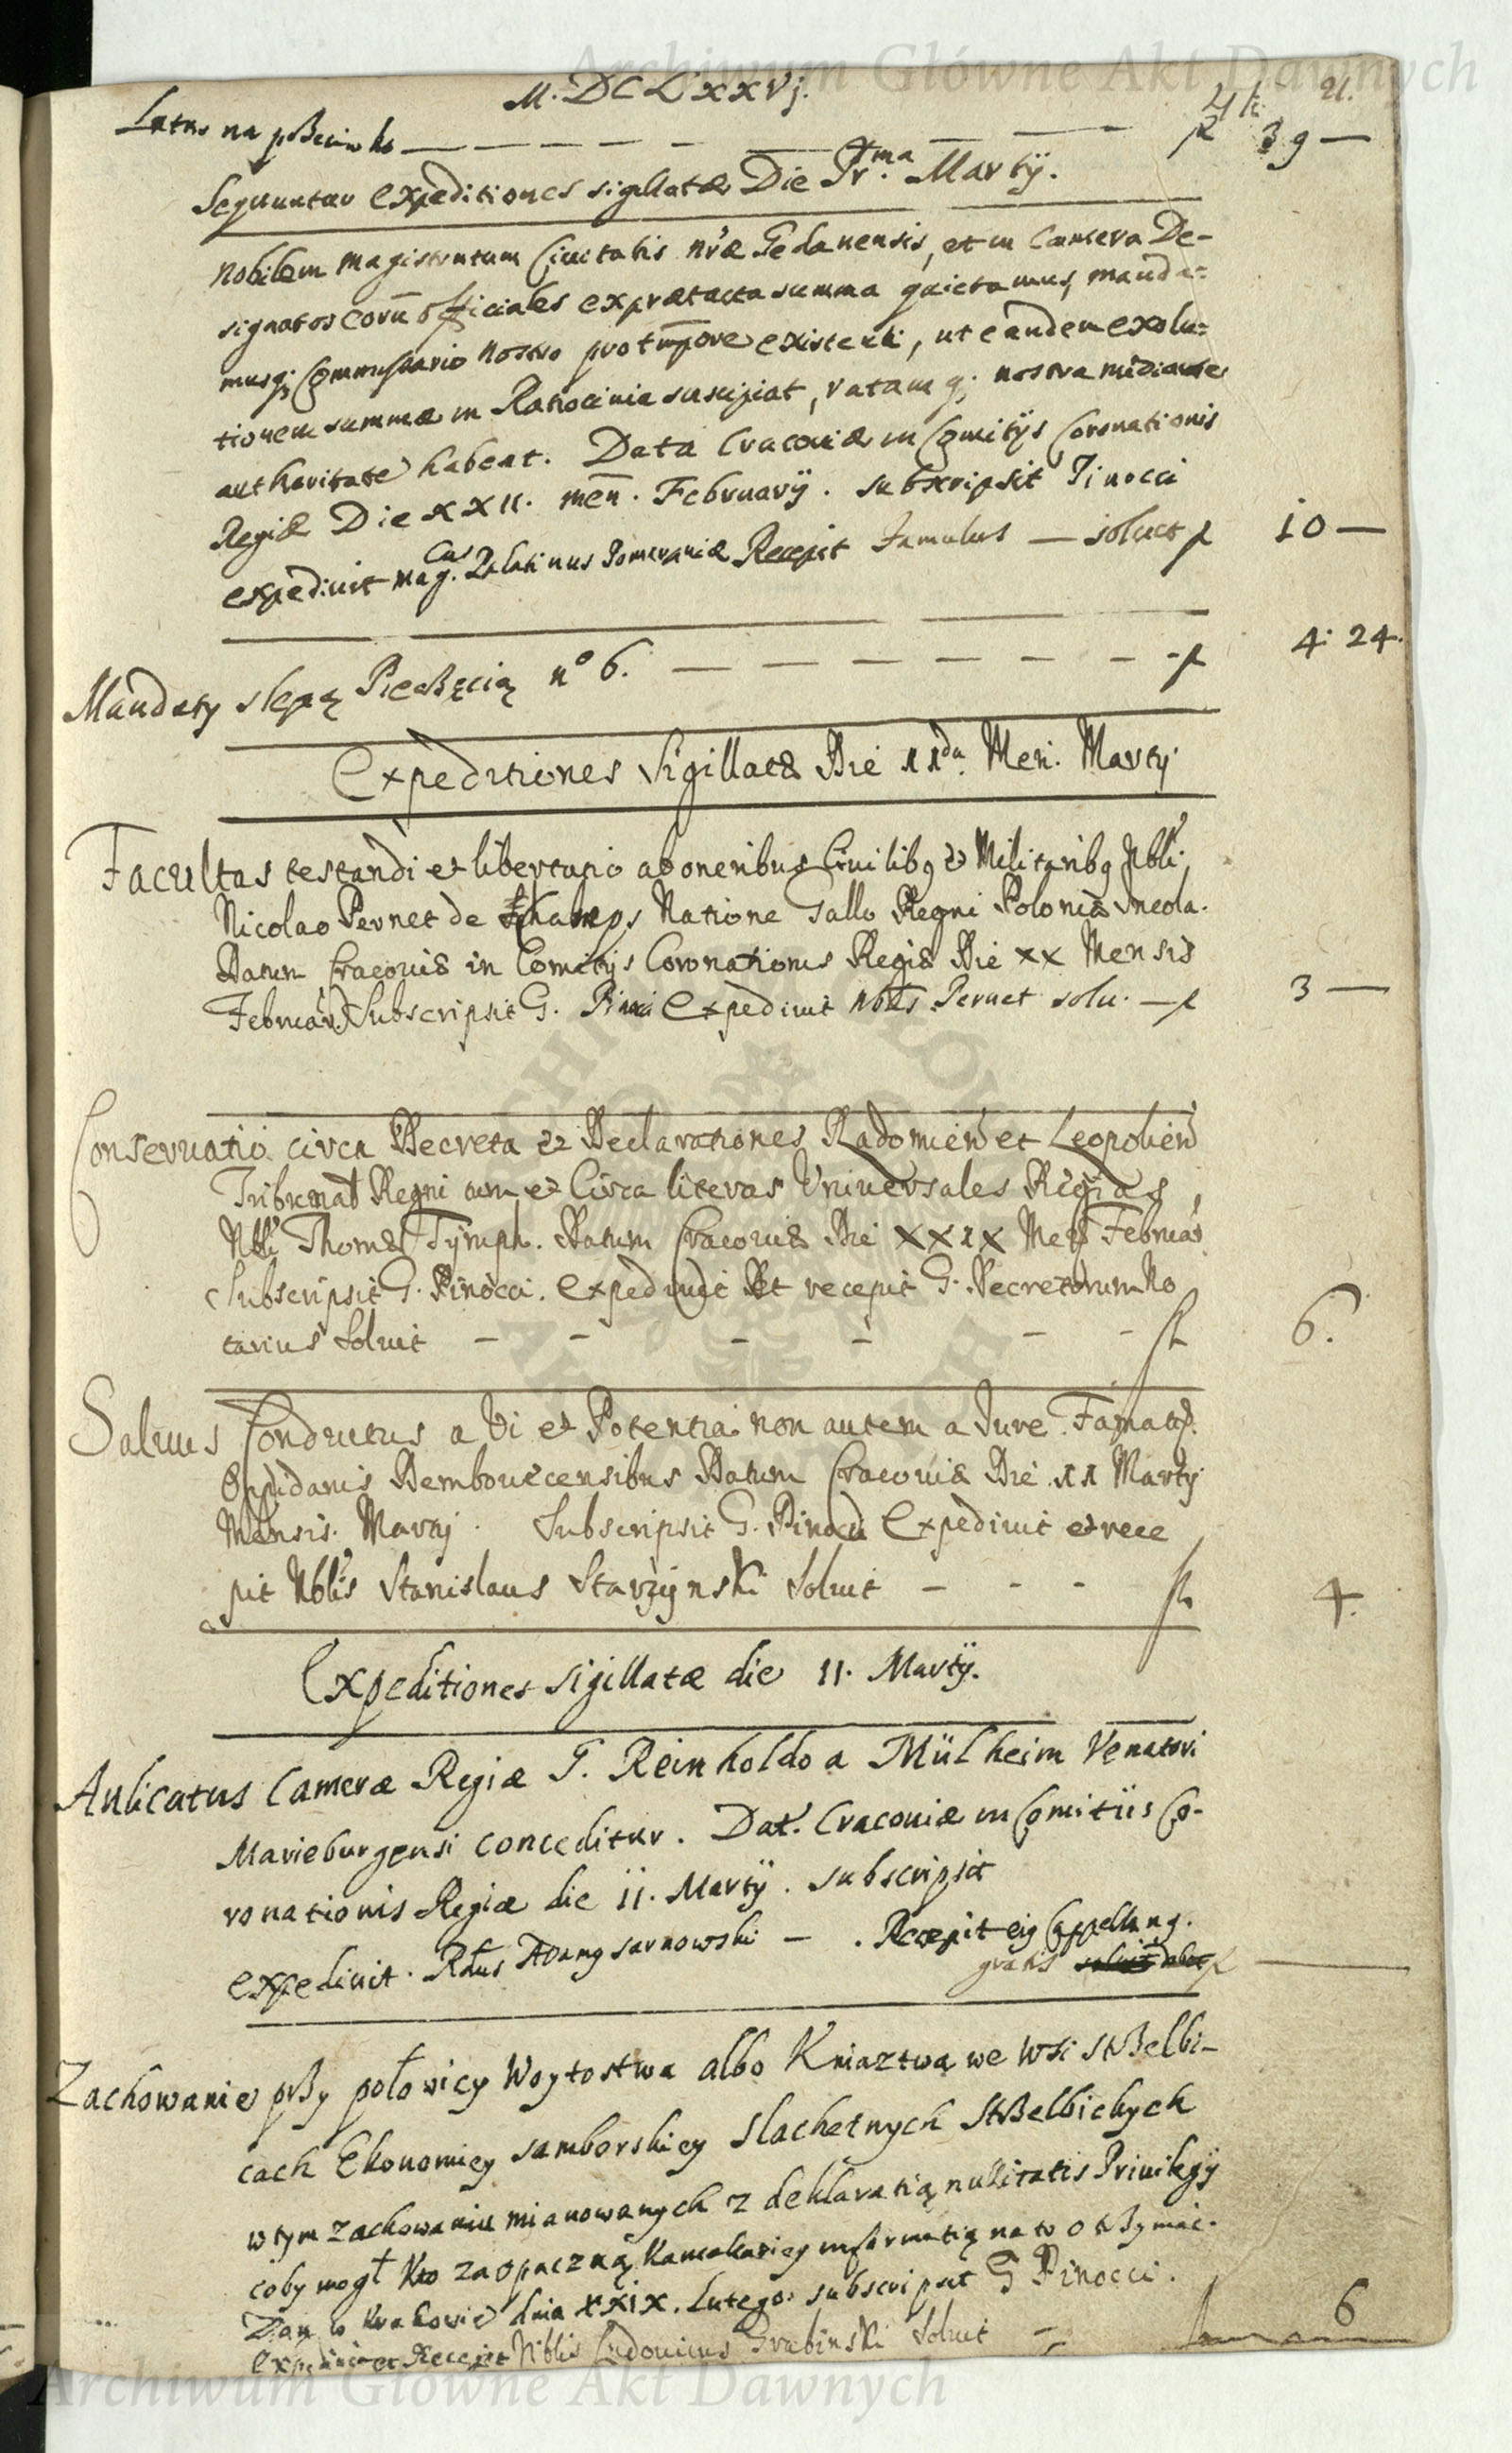 Archiwum Główne Akt Dawnych
M. DCLXXVj.
21.
Latus na pßeciwko — — — — — — — — 39 —
Sequuntur expeditiones sigillatæ Die Pr.ma Martij.
Nobilem Magistratum Ciuitatis nræ Gedanensis, et in Camera De-
signatos eorū officiales ex prætacta summa quietamus, manda-
musq; Commissario Nostro pro tempore existenti, ut eandem exolu-
tionem summæ in Ratiocinia suscipiat, ratamq; nostra mediante
authoritate habeat. Data Cracouiæ in Comitijs Coronationis
Regiæ Die XXII. men. Februarij. subscripsit Pinocci
expediuit Mag.cus Palatinus Pomeraniæ Recepit Famulus — soluit 10 —
Mandaty slepą Pieczęcią no 6. — — — — — — 4: 24.
Expeditiones Sigillatæ Die 11da. Men. Martij
Facultas testandi et libertatio ab oneribus Ciuilibq et Militaribq Nbli,
Nicolao Pernet de Champs Natione Gallo Regni Poloniæ Incola.
Datum Cracouiæ in Comitijs Coronationis Regiæ Die XX Mensis
Februar. Subscripsit G. Pinocci Expediuit Nbls Pernet solu. — 3 —
Conseruatio circa Decreta et Declarationes Radomien et Leopolien
Tribunal Regni tum et Circa literas Uniuersales Regias,
Nbli Thomæ Tymph. Datum Cracouiæ Die XXIX Mens Februar
Subscripsit G. Pinocci. Expediuit Et recepit G. Decretorum No
tarius Soluit — — — — — — fl 6.
Saluus Conductus a Vi et Potentia non autem a Jure. Famatis.
Oppidanis Dembouecensibus Datum Cracouiæ Die 11 Martij
Mensis. Martij. Subscripsit G. Pinocci Expediuit et rece
pit Nblis Stanislaus Starzynski Soluit — — — fl 4.
Expeditiones sigillatæ die 11. Martij.
Aulicatus Cameræ Regiæ G. Reinholdo a Mülheim Venatori
Marieburgensi conceditur. Dat. Cracouiæ in Comitiis Co-
ronationis Regiæ die 11. Martij. subscripsit
expediuit. Rdus Adamg Sarnowski — . Recepit eig Cappellang.
gratis
Zachowanie pßy połowicy Woytostwa albo Kniaztwa we Wsi Stßelbi-
cach Ekonomiey Samborskiey Slachetnych Stßelbickych
w tym zachowaniu mianowanych z deklaratią nullitatis Priuilegij
coby mogł kto za opaczną Kancelariey informatią na to otßymac.
Dan w Krakowie dnia XXIX. Lutego. subscripsit G Pinocci.
expediuit et Recepit Nblis Ludouicus Grabinski Soluit — 6
Archiwum Główne Akt Dawnych